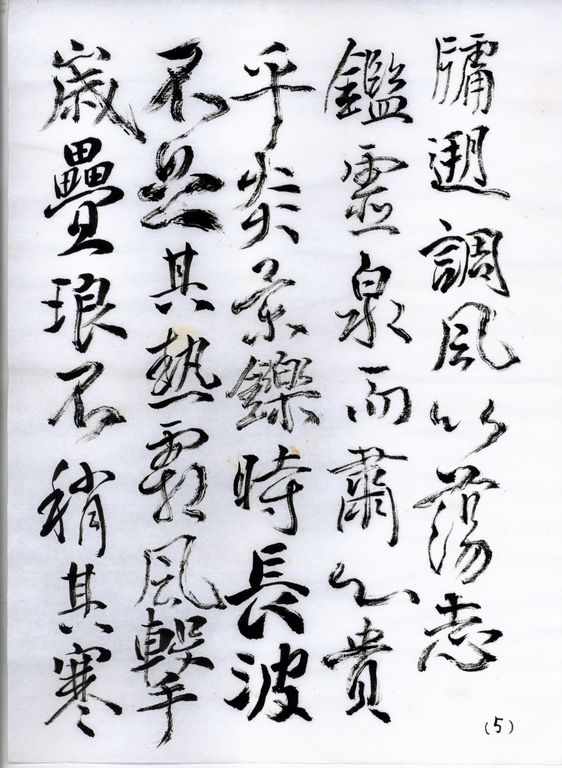 牖遊調風以蕩志
鑑靈泉而肅心貴
乎炎景鑠時長波
不足其熱霸風擊
歲疊琅不稍其寒
(5)